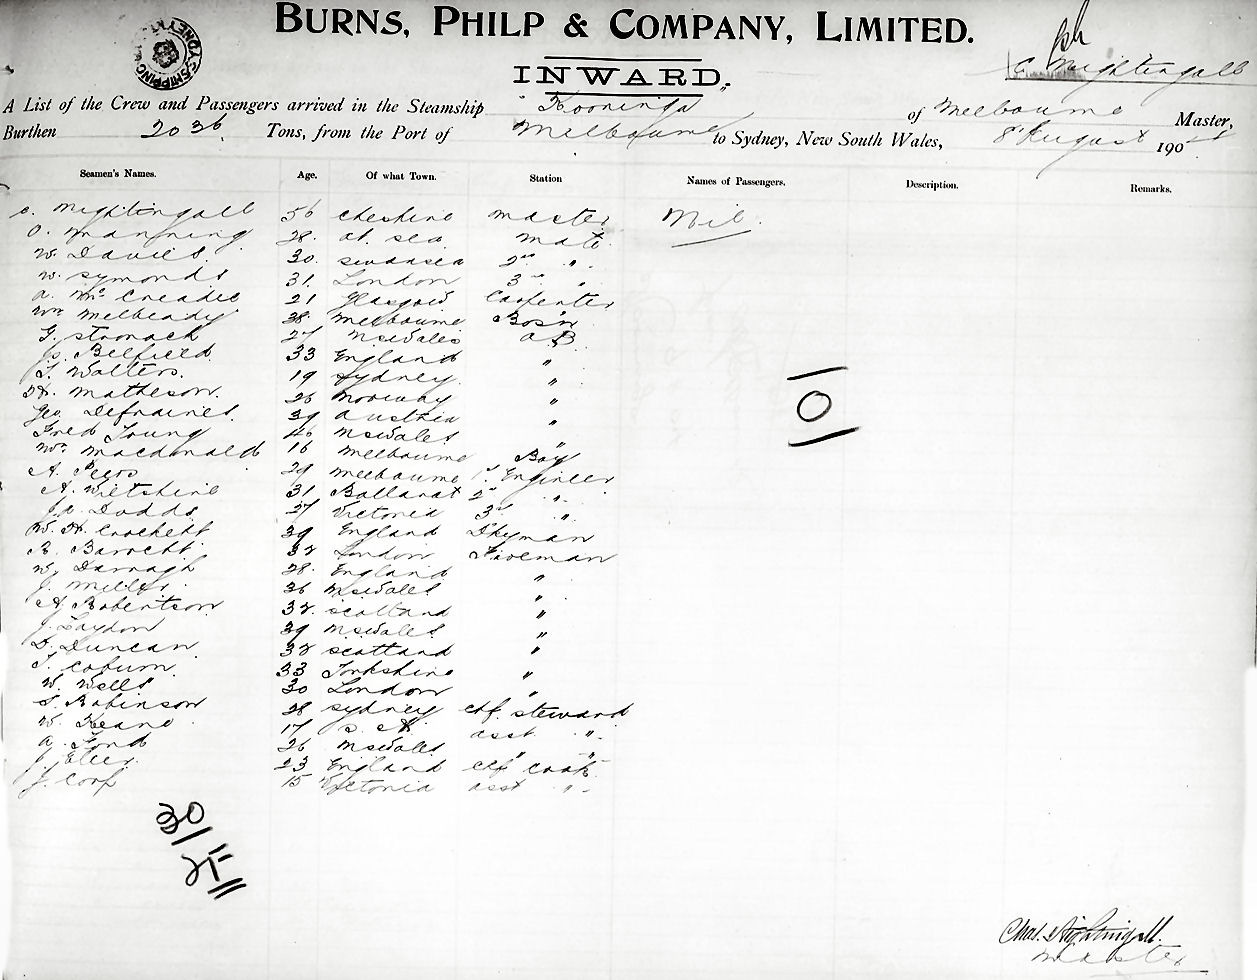 BURNS, PHILP & COMPANY, LIMITED.
INWARD.
C Nightingall
A List of the Crew and Passengers arrived in the Steamship "Kooninga" of Melbourne Master,
Burthen 2036 Tons, from the Port of Melbourne to Sydney, New South Wales, 8 August 190
Seamen's Names. Age. Of what Town. Station Names of Passengers. Description. Remarks.
C. Nightingall 56 Cheshire Master Nil.
O. Manning 28. at sea Mate
W. Davies. 30. Swansea 2nd "
W. Symonds 31. London 3rd "
A. McCreadie 21 Glasgow Carpenter
Wm Melbeady 38. Melbourne Bos'n
G. Stronach 27 NSWales AB
Js. Belfield 33 England "
T. Walters. 19 Sydney "
Hy. Matheson. 26 Norway "
Geo. Defraines 39 Austria "
Fred Young 46 NSWales "
Wm Macdonald 16 Melbourne Boy
A. Peers 29 Melbourne 1st Engineer
A. Wiltshire 31 Ballarat 2nd "
Jas. Dodds 27 Victoria 3rd "
W. H. Crockett 39 England D'kyman
R. Barrett 32 London Fireman
W. Darragh 28. England "
J. Miller 36 NSWales "
A. Robertson 32. Scotland "
J. Laydon 39 NSWales "
D. Duncan. 32 Scotland "
T. Coburn 33 Yorkshire "
W. Wells 30 London "
S. Robinson 28 Sydney chf. steward
W. Keane 17 S. A. asst. "
A. Ford 26 NSWales " "
J. 23 England chf cook
J. Corp 15 Victoria asst "
10
30
Chas. Nightingall.
Master